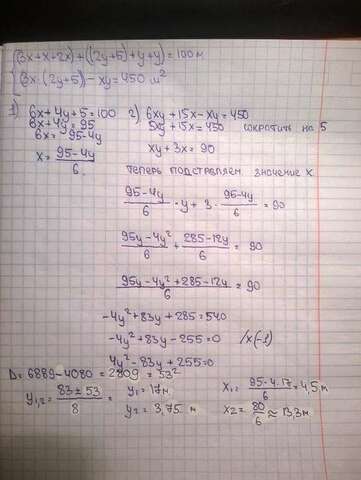 (3x+x+2x)+((2y+5)+y+y)=100 м
(3x·(2y+5))-xy=450 м²
1) 6x+4y+5=100
6x+4y=95
6x=95-4y
x=95-4y/6
2) 6xy+15x-xy=450
5xy+15x=450 сократить на 5
xy+3x=90
теперь подставляем значение x
95-4y/6·y+3·95-4y/6=90
95y-4y²/6+285-12y/6=90
95y-4y²+285-12y/6=90
-4y²+83y+285=540
-4y²+83y-255=0 /x(-1)
4y²-83y+255=0
D=6889-4080=2809=53²
y1,2=83±53/8= y1=17м x1=95-4·17/6=4,5 м
y2=3,75 м x2=80/6≈13,3м